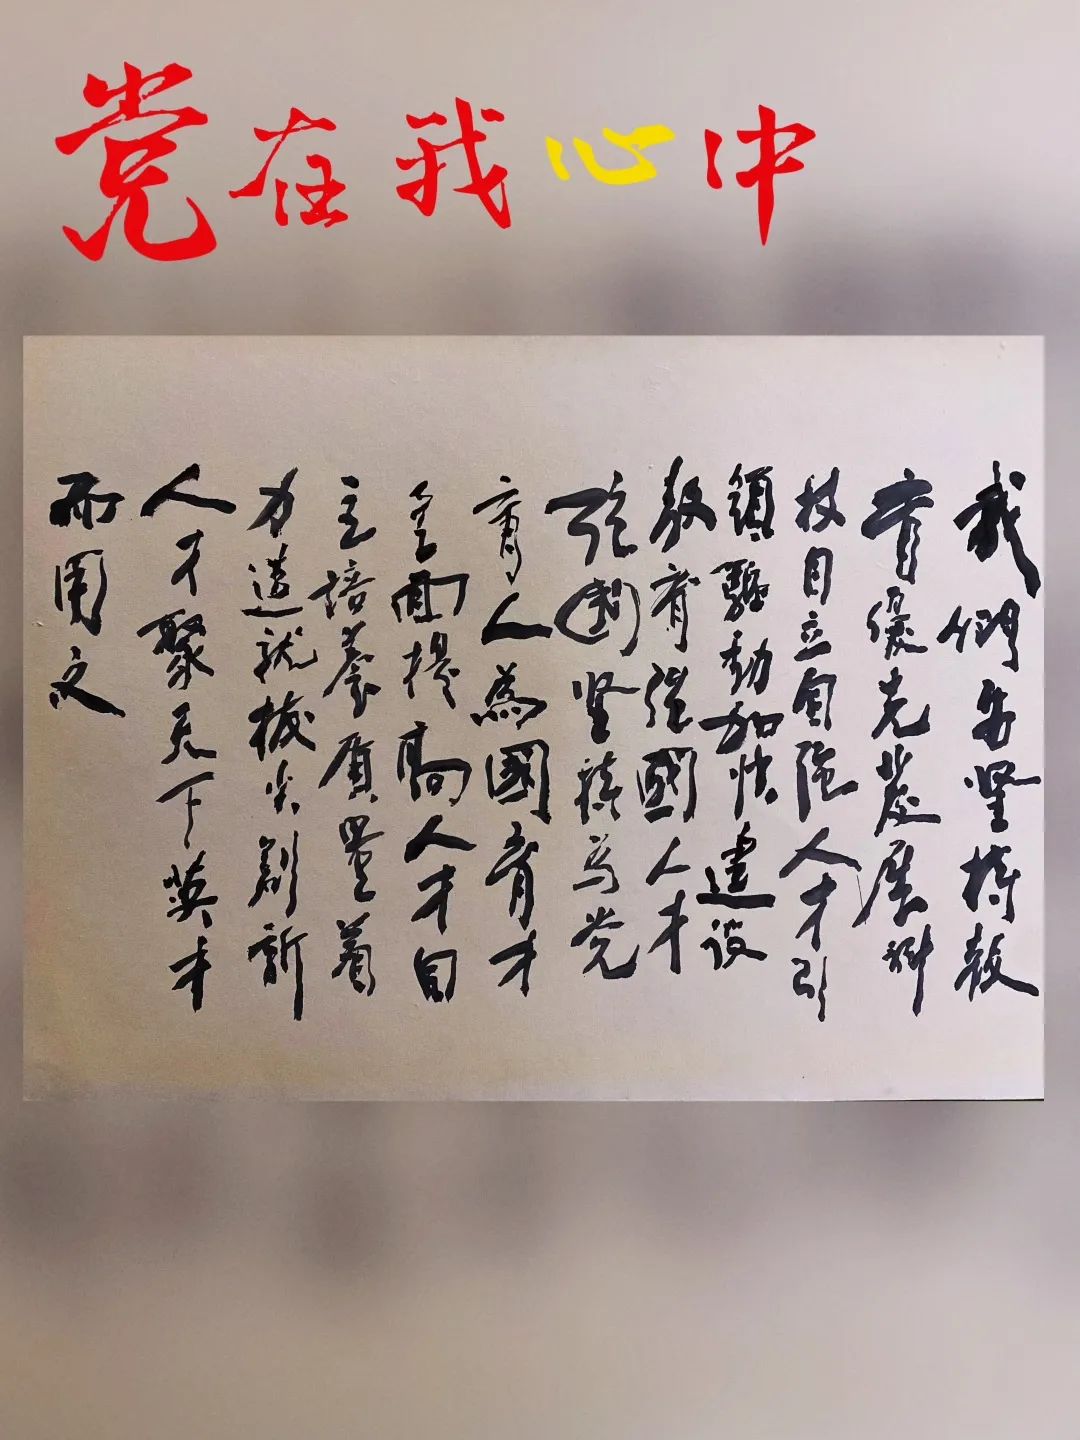 党在我心中
我们要坚持教
育优先发展科
技自立自强人才引
领驱动加快建设
教育强国人才
强国坚持为党
育人為國育才
全面提高人才自
主培养质量着
力造就拔尖创新
人才聚天下英才
而用之